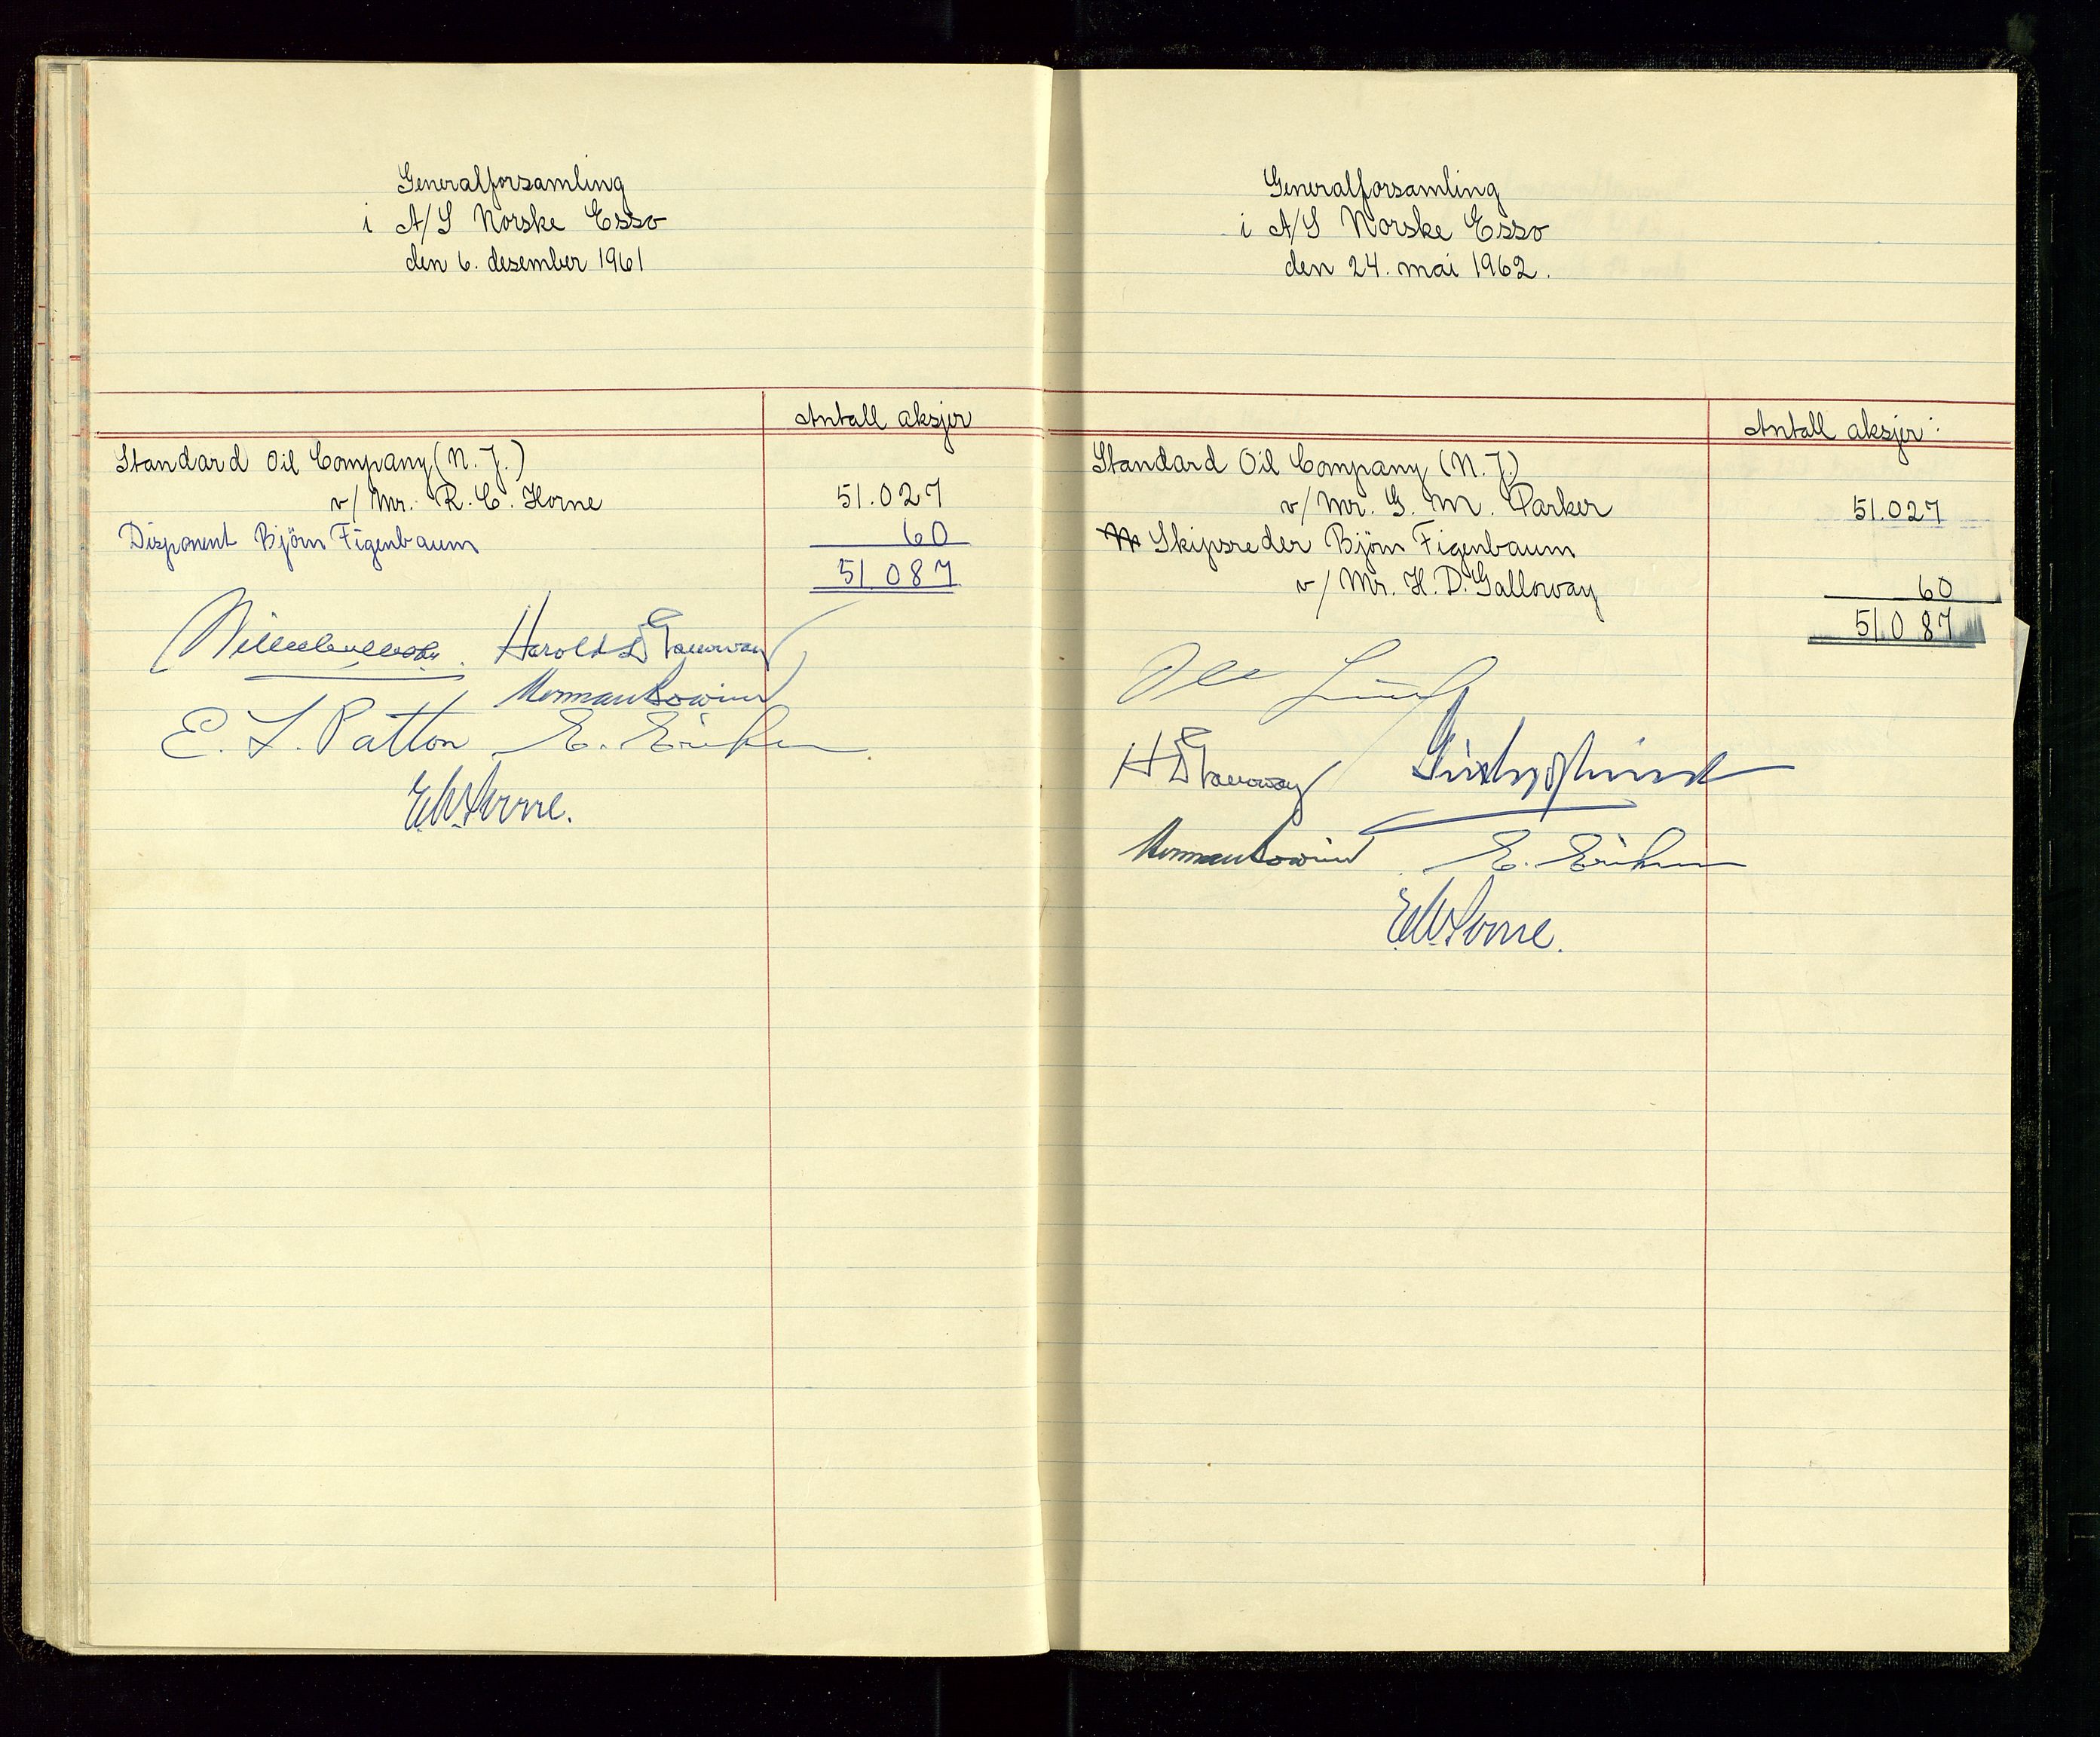 Generalforsamling
i A/S Norske Esso
den 6. desember 1961
Antall aksjer
Standard Oil Company (N. J.)
v/ Mr. R. C. Horne 51.027
Disponent Björn Figenbaum 60
51 087
Harold D Galloway
E. L. Patton E.
Generalforsamling
i A/S Norske Esso
den 24. mai 1962.
Antall aksjer:
Standard Oil Company (N. J.)
v/ Mr. G. M. Parker 51.027
Skipsreder Björn Figenbaum
v/ Mr. H. D. Galloway 60
51 0 87
H D Galloway
E.